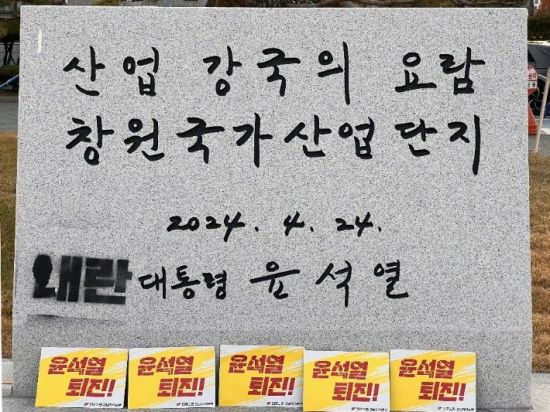 산업 강국의 요람
창원국가산업단지
2024. 4. 24.
내란 대통령 윤석열
윤석열
퇴진!
윤석열
퇴진!
윤석열
퇴진!
윤석열
퇴진!
윤석열
퇴진!